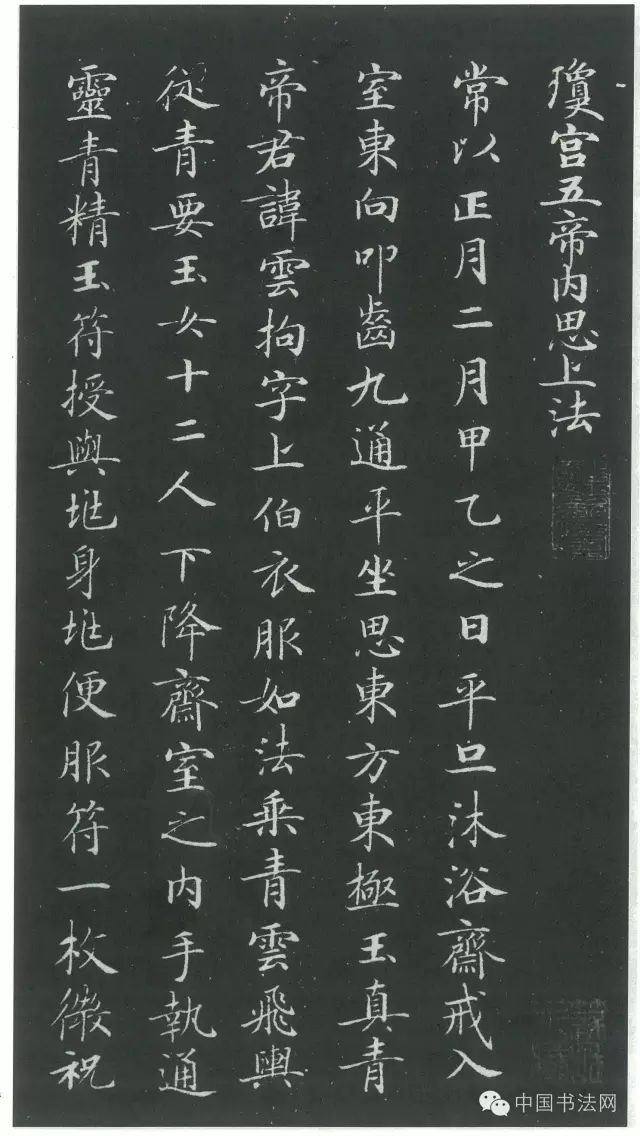 瓊宮五帝内思上法
常以正月二月甲乙之日平旦沐浴齋戒入
室東向叩齒九通平坐思東方東極玉真青
帝君諱雲拘字上伯衣服如法乘青雲飛輿
從青要玉女十二人下降齋室之内手執通
靈青精玉符授與兆身兆便服符一枚微祝
中国书法网